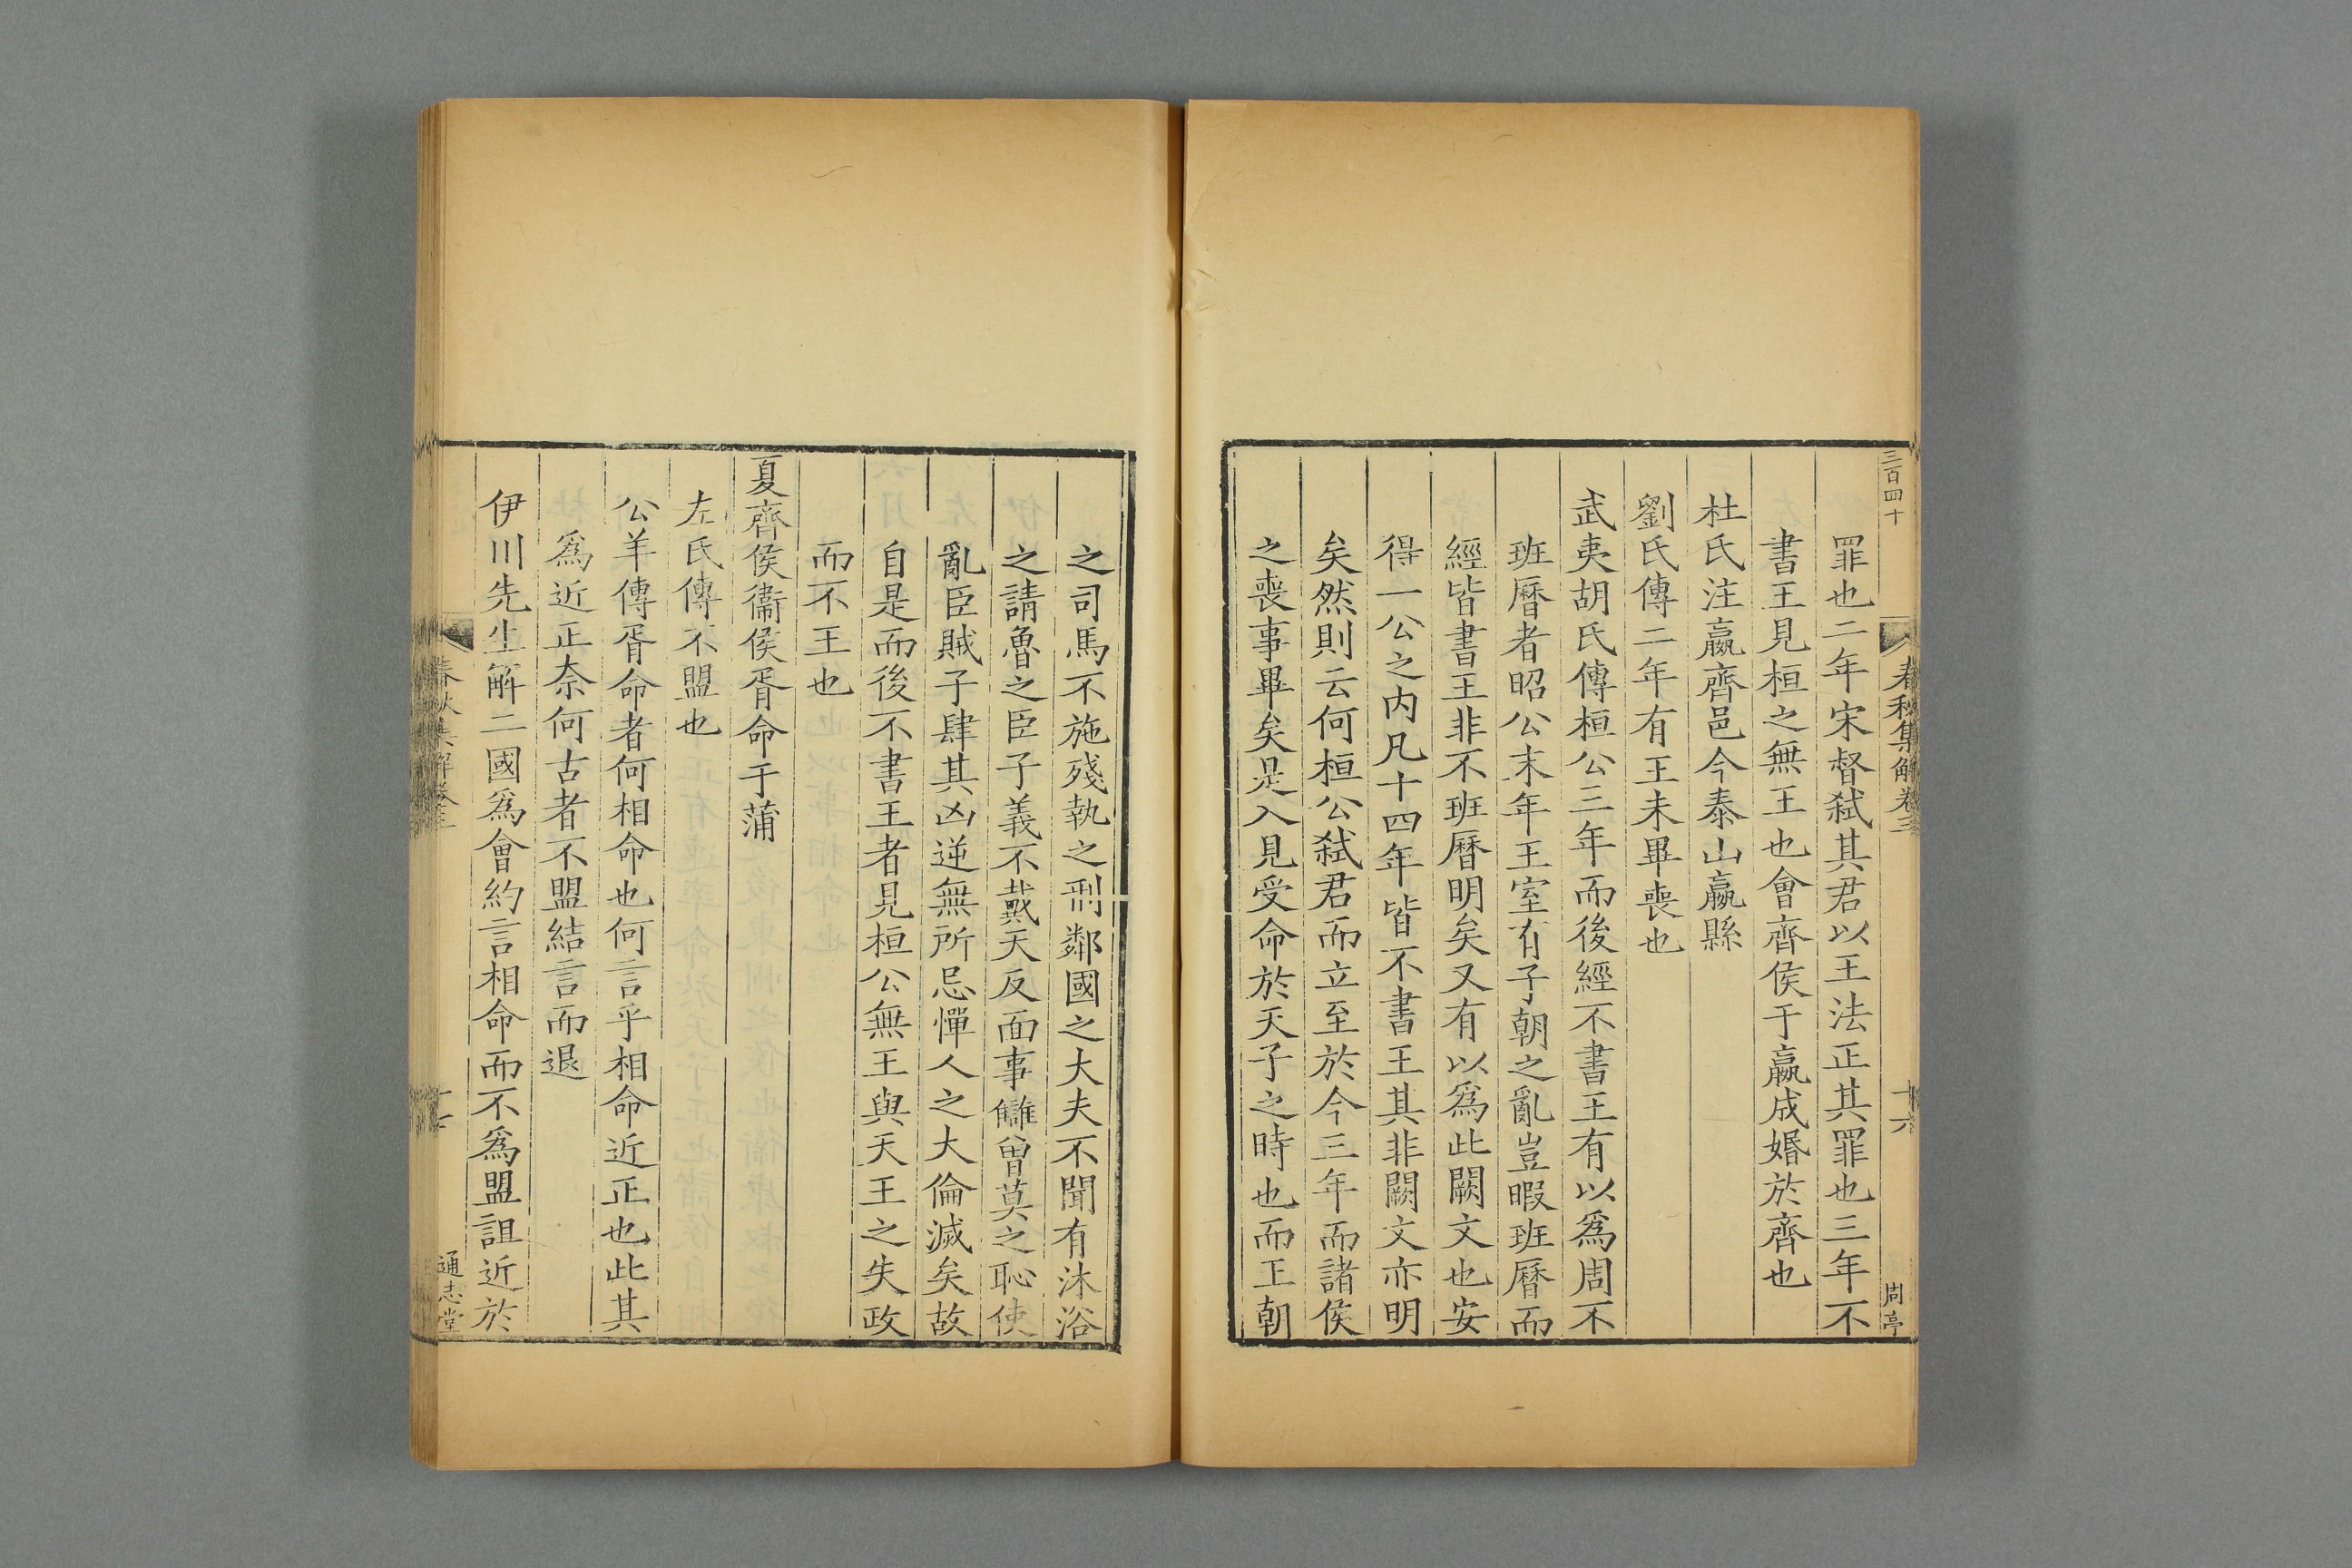 三百四十
春秋集解卷三
十六
周亭
罪也二年宋督弑其君以王法正其罪也三年不
書王見桓之無王也會齊侯于嬴成婚於齊也
杜氏注嬴齊邑今泰山嬴縣
劉氏傳二年有王未畢喪也
武夷胡氏傳桓公三年而後經不書王有以爲周不
班曆者昭公末年王室有子朝之亂豈暇班曆而
經皆書王非不班曆明矣又有以爲此闕文也安
得一公之内凡十四年皆不書王其非闕文亦明
矣然則云何桓公弑君而立至於今三年而諸侯
之喪事畢矣是入見受命於天子之時也而王朝
之司馬不施殘執之刑鄰國之大夫不聞有沐浴
之請魯之臣子義不戴天反面事讎曾莫之恥使
亂臣賊子肆其凶逆無所忌憚人之大倫滅矣故
自是而後不書王者見桓公無王與天王之失政
而不王也
夏齊侯衞侯胥命于蒲
左氏傳不盟也
公羊傳胥命者何相命也何言乎相命近正也此其
爲近正奈何古者不盟結言而退
伊川先生解二國爲會約言相命而不爲盟詛近於
春秋集解卷三
通志堂